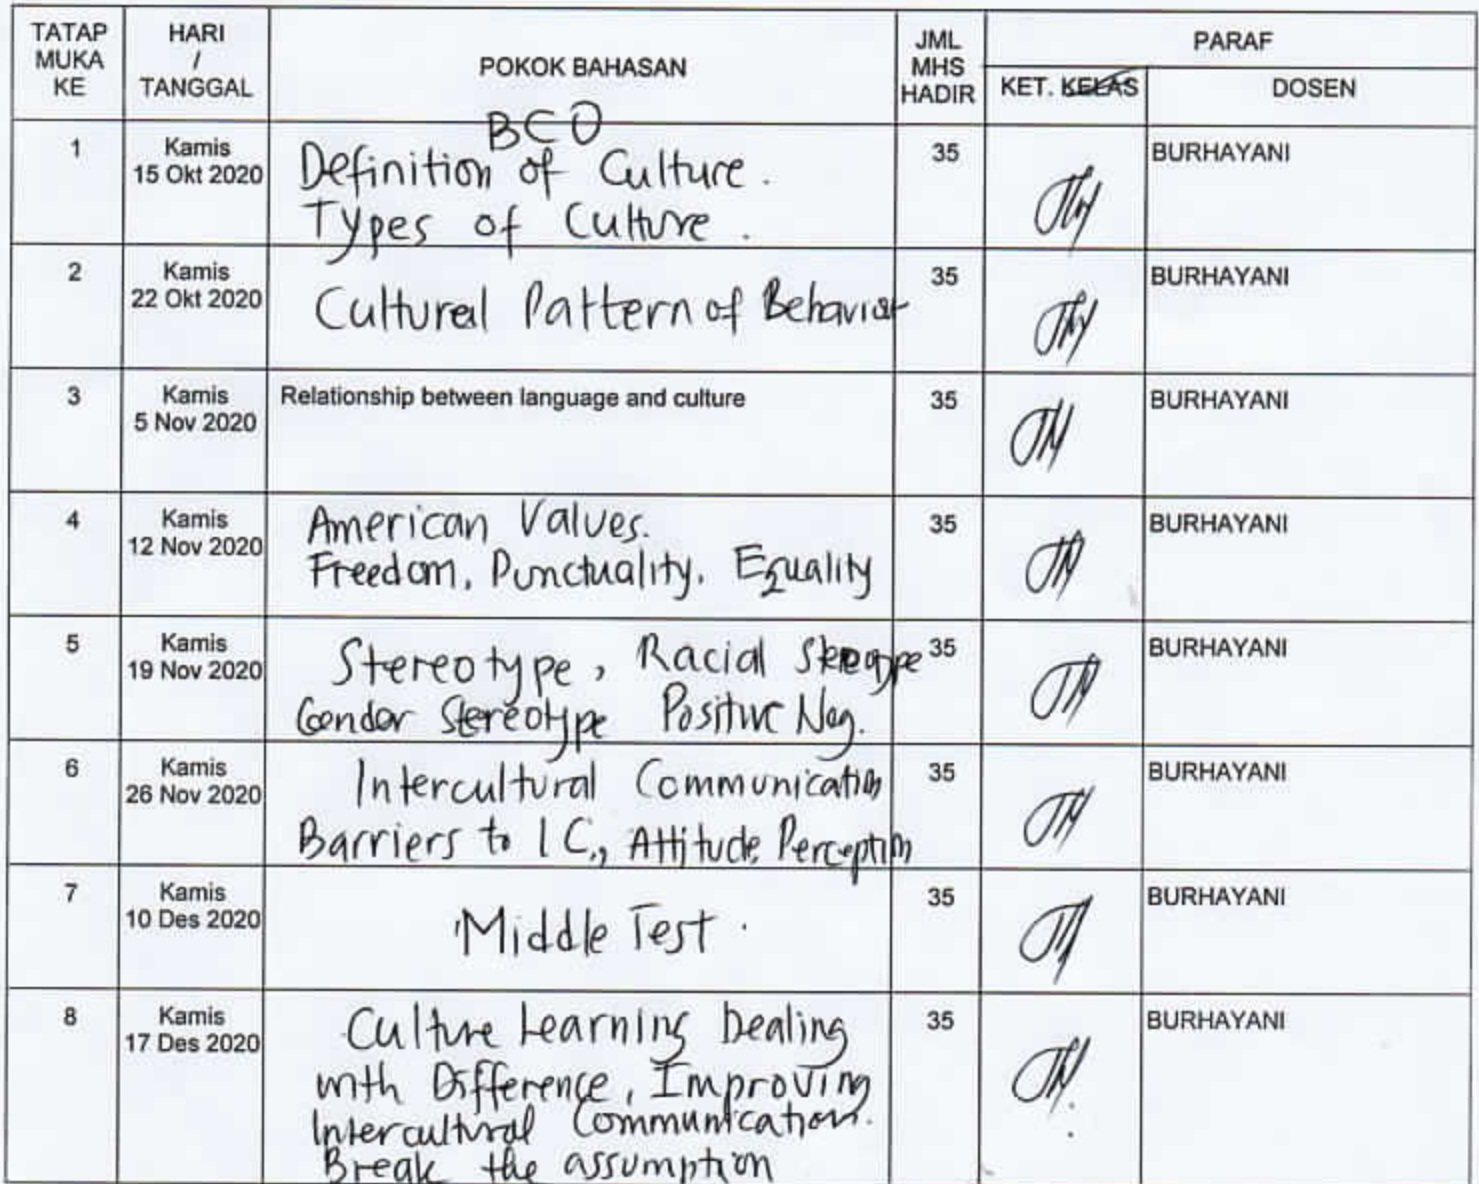 TATAP MUKA KE
HARI / TANGGAL
POKOK BAHASAN
JML MHS HADIR
PARAF
KET. KELAS
DOSEN
BCO
1
Kamis
15 Okt 2020
Definition of Culture.
Types of Culture.
35
BURHAYANI
2
Kamis
22 Okt 2020
Cultural Pattern of Behavior
35
BURHAYANI
3
Kamis
5 Nov 2020
Relationship between language and culture
35
BURHAYANI
4
Kamis
12 Nov 2020
American Values.
Freedom, Punctuality, Equality
35
BURHAYANI
5
Kamis
19 Nov 2020
Stereotype, Racial
Gender Stereotype Positive Neg.
35
BURHAYANI
6
Kamis
26 Nov 2020
Intercultural Communication
Barriers to I C., Attitude, Perception
35
BURHAYANI
7
Kamis
10 Des 2020
Middle Test.
35
BURHAYANI
8
Kamis
17 Des 2020
Culture Learning Dealing
with Difference, Improving
Intercultural Communication.
Break the assumption
35
BURHAYANI